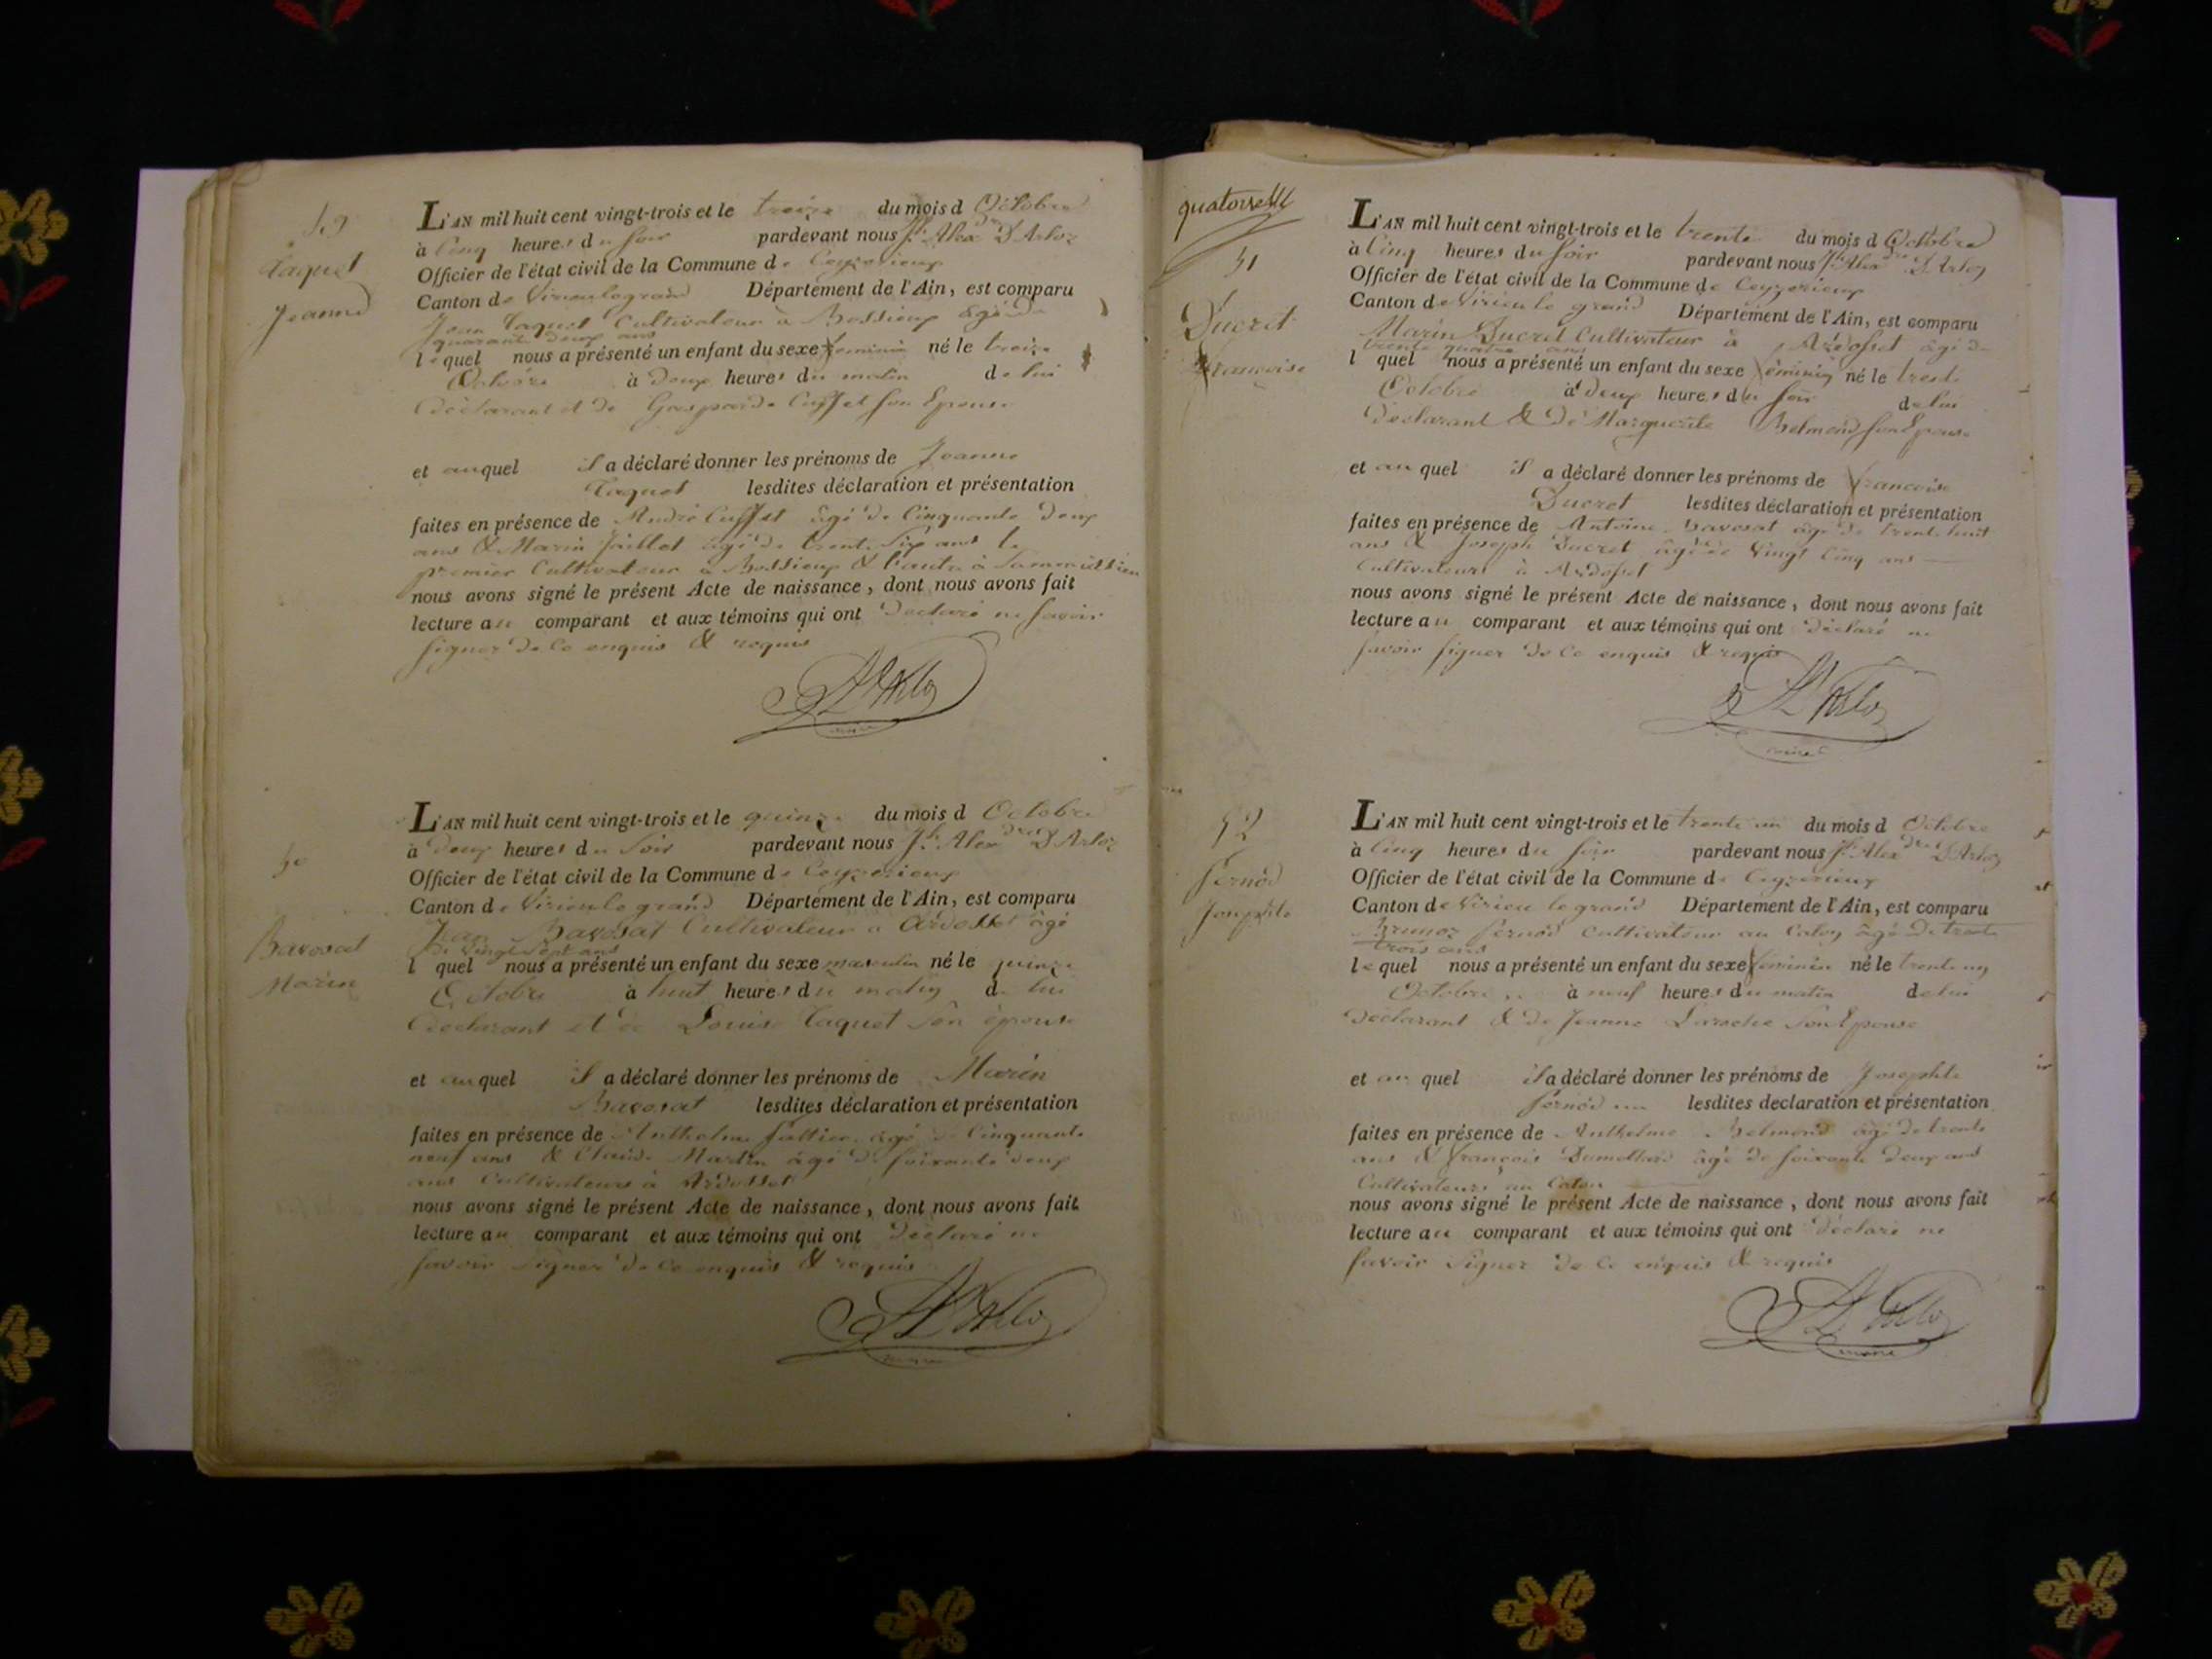 49
Taquet
Jeanne
L'AN mil huit cent vingt-trois et le treize du mois d Octobre
à Cinq heures du soir pardevant nous Jh Alexdre D'Arloz
Officier de l'état civil de la Commune de Ceyzerieux
Canton de Virieu le grand Département de l'Ain, est comparu
Jean Taquet Cultivateur à Bossieux âgé de
quarante deux ans
lequel nous a présenté un enfant du sexe feminin né le treize
Octobre à deux heures du matin de lui
déclarant et de Gasparde Cusset son Epouse
et auquel il a déclaré donner les prénoms de Jeanne
Taquet lesdites déclaration et présentation
faites en présence de André Cusset âgé de Cinquante deux
ans & Marin Jaillet âgé de trente six ans le
premier Cultivateur à Bossieux & l'autre à
nous avons signé le présent Acte de naissance, dont nous avons fait
lecture au comparant et aux témoins qui ont déclaré ne savoir
signer de ce enquis & requis
50
Bavosat
Marin
L'AN mil huit cent vingt-trois et le quinze du mois d Octobre
à deux heures du soir pardevant nous Jh Alexdre D'Arloz
Officier de l'état civil de la Commune de Ceyzerieux
Canton de Virieu le grand Département de l'Ain, est comparu
Jean Bavosat Cultivateur à Ardosset âgé
de vingt sept ans
l quel nous a présenté un enfant du sexe masculin né le quinze
Octobre à huit heures du matin de lui
déclarant et de Louise Taquet son épouse
et auquel il a déclaré donner les prénoms de Marin
Bavosat lesdites déclaration et présentation
faites en présence de Anthelme âgé de Cinquante
neuf ans & Claude Martin âgé de soixante deux
ans Cultivateurs à Ardosset
nous avons signé le présent Acte de naissance, dont nous avons fait
lecture au comparant et aux témoins qui ont déclaré ne
savoir signer de ce enquis & requis
quatorze
51
Ducret
françoise
L'AN mil huit cent vingt-trois et le trente du mois d Octobre
à Cinq heures du soir pardevant nous Jh Alexdre D'Arloz
Officier de l'état civil de la Commune de Ceyzerieux
Canton de Virieu le grand Département de l'Ain, est comparu
Marin Ducret Cultivateur à Ardosset âgé de
trente quatre ans
l quel nous a présenté un enfant du sexe féminin né le trente
Octobre à deux heures du soir de lui
déclarant & de Marguerite Belmond son Epouse
et au quel il a déclaré donner les prénoms de françoise
Ducret lesdites déclaration et présentation
faites en présence de Antoine Bavosat âgé de trente huit
ans & Joseph Ducret âgé de vingt Cinq ans
Cultivateurs à Ardosset
nous avons signé le présent Acte de naissance, dont nous avons fait
lecture au comparant et aux témoins qui ont déclaré ne
savoir signer de ce enquis & requis
52
Pernod
Josephte
L'AN mil huit cent vingt-trois et le trente un du mois d Octobre
à Cinq heures du soir pardevant nous Jh Alexdre D'Arloz
Officier de l'état civil de la Commune de Ceyzerieux
Canton de Virieu le grand Département de l'Ain, est comparu
Pernod Cultivateur au Caton âgé de trente
trois ans
lequel nous a présenté un enfant du sexe féminin né le trente un
Octobre à neuf heures du matin de lui
déclarant & de Jeanne Laroche son Epouse
et au quel il a déclaré donner les prénoms de Josephte
Pernod lesdites declaration et présentation
faites en présence de Anthelme Belmond âgé de trente
ans & françois Dumollard âgé de soixante deux ans
Cultivateurs au Caton
nous avons signé le présent Acte de naissance, dont nous avons fait
lecture au comparant et aux témoins qui ont déclaré ne
savoir signer de ce enquis & requis
maire